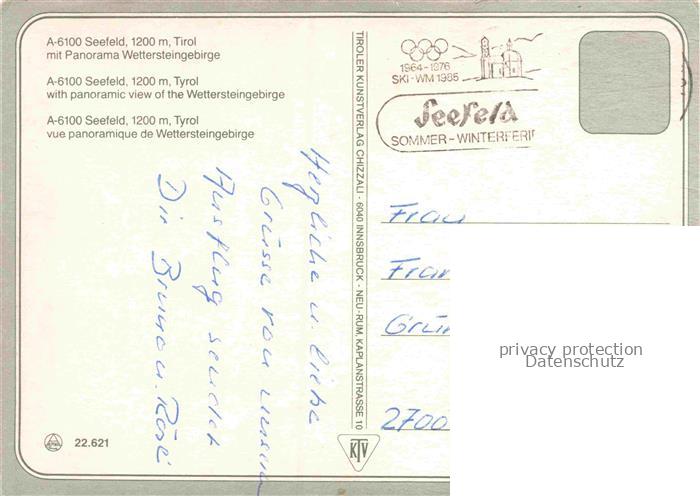 A-6100 Seefeld, 1200 m, Tirol
mit Panorama Wettersteingebirge
A-6100 Seefeld, 1200 m, Tyrol
with panoramic view of the Wettersteingebirge
A-6100 Seefeld, 1200 m, Tyrol
vue panoramique de Wettersteingebirge
Herzliche u. liebe
Grüsse von unserm
Ausflug sendet
Dir Bruno u. Rösli
22.621
TIROLER KUNSTVERLAG CHIZZALI - 6040 INNSBRUCK - NEU-RUM, KAPLANSTRASSE 10
KTV
1964-1976
SKI-WM 1985
Seefeld
SOMMER-WINTERFERI
Frau
Fran
Grün
2700
privacy protection
Datenschutz